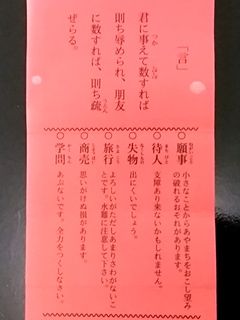 「言」
君に事えて数すれば
則ち辱められ、朋友
に数すれば、則ち疏
ぜらる。
○願事 小さなことからあやまちをおこし望み
の破れるおそれがあります。
○待人 支障あり来ないかもしれません。
○失物 出にくいでしょう。
○旅行 よろしいがただしあまりさわがないこ
とです。水難に注意して下さい。
○商売 思いがけぬ損があります。
○学問 あぶないです。全力をつくしなさい。